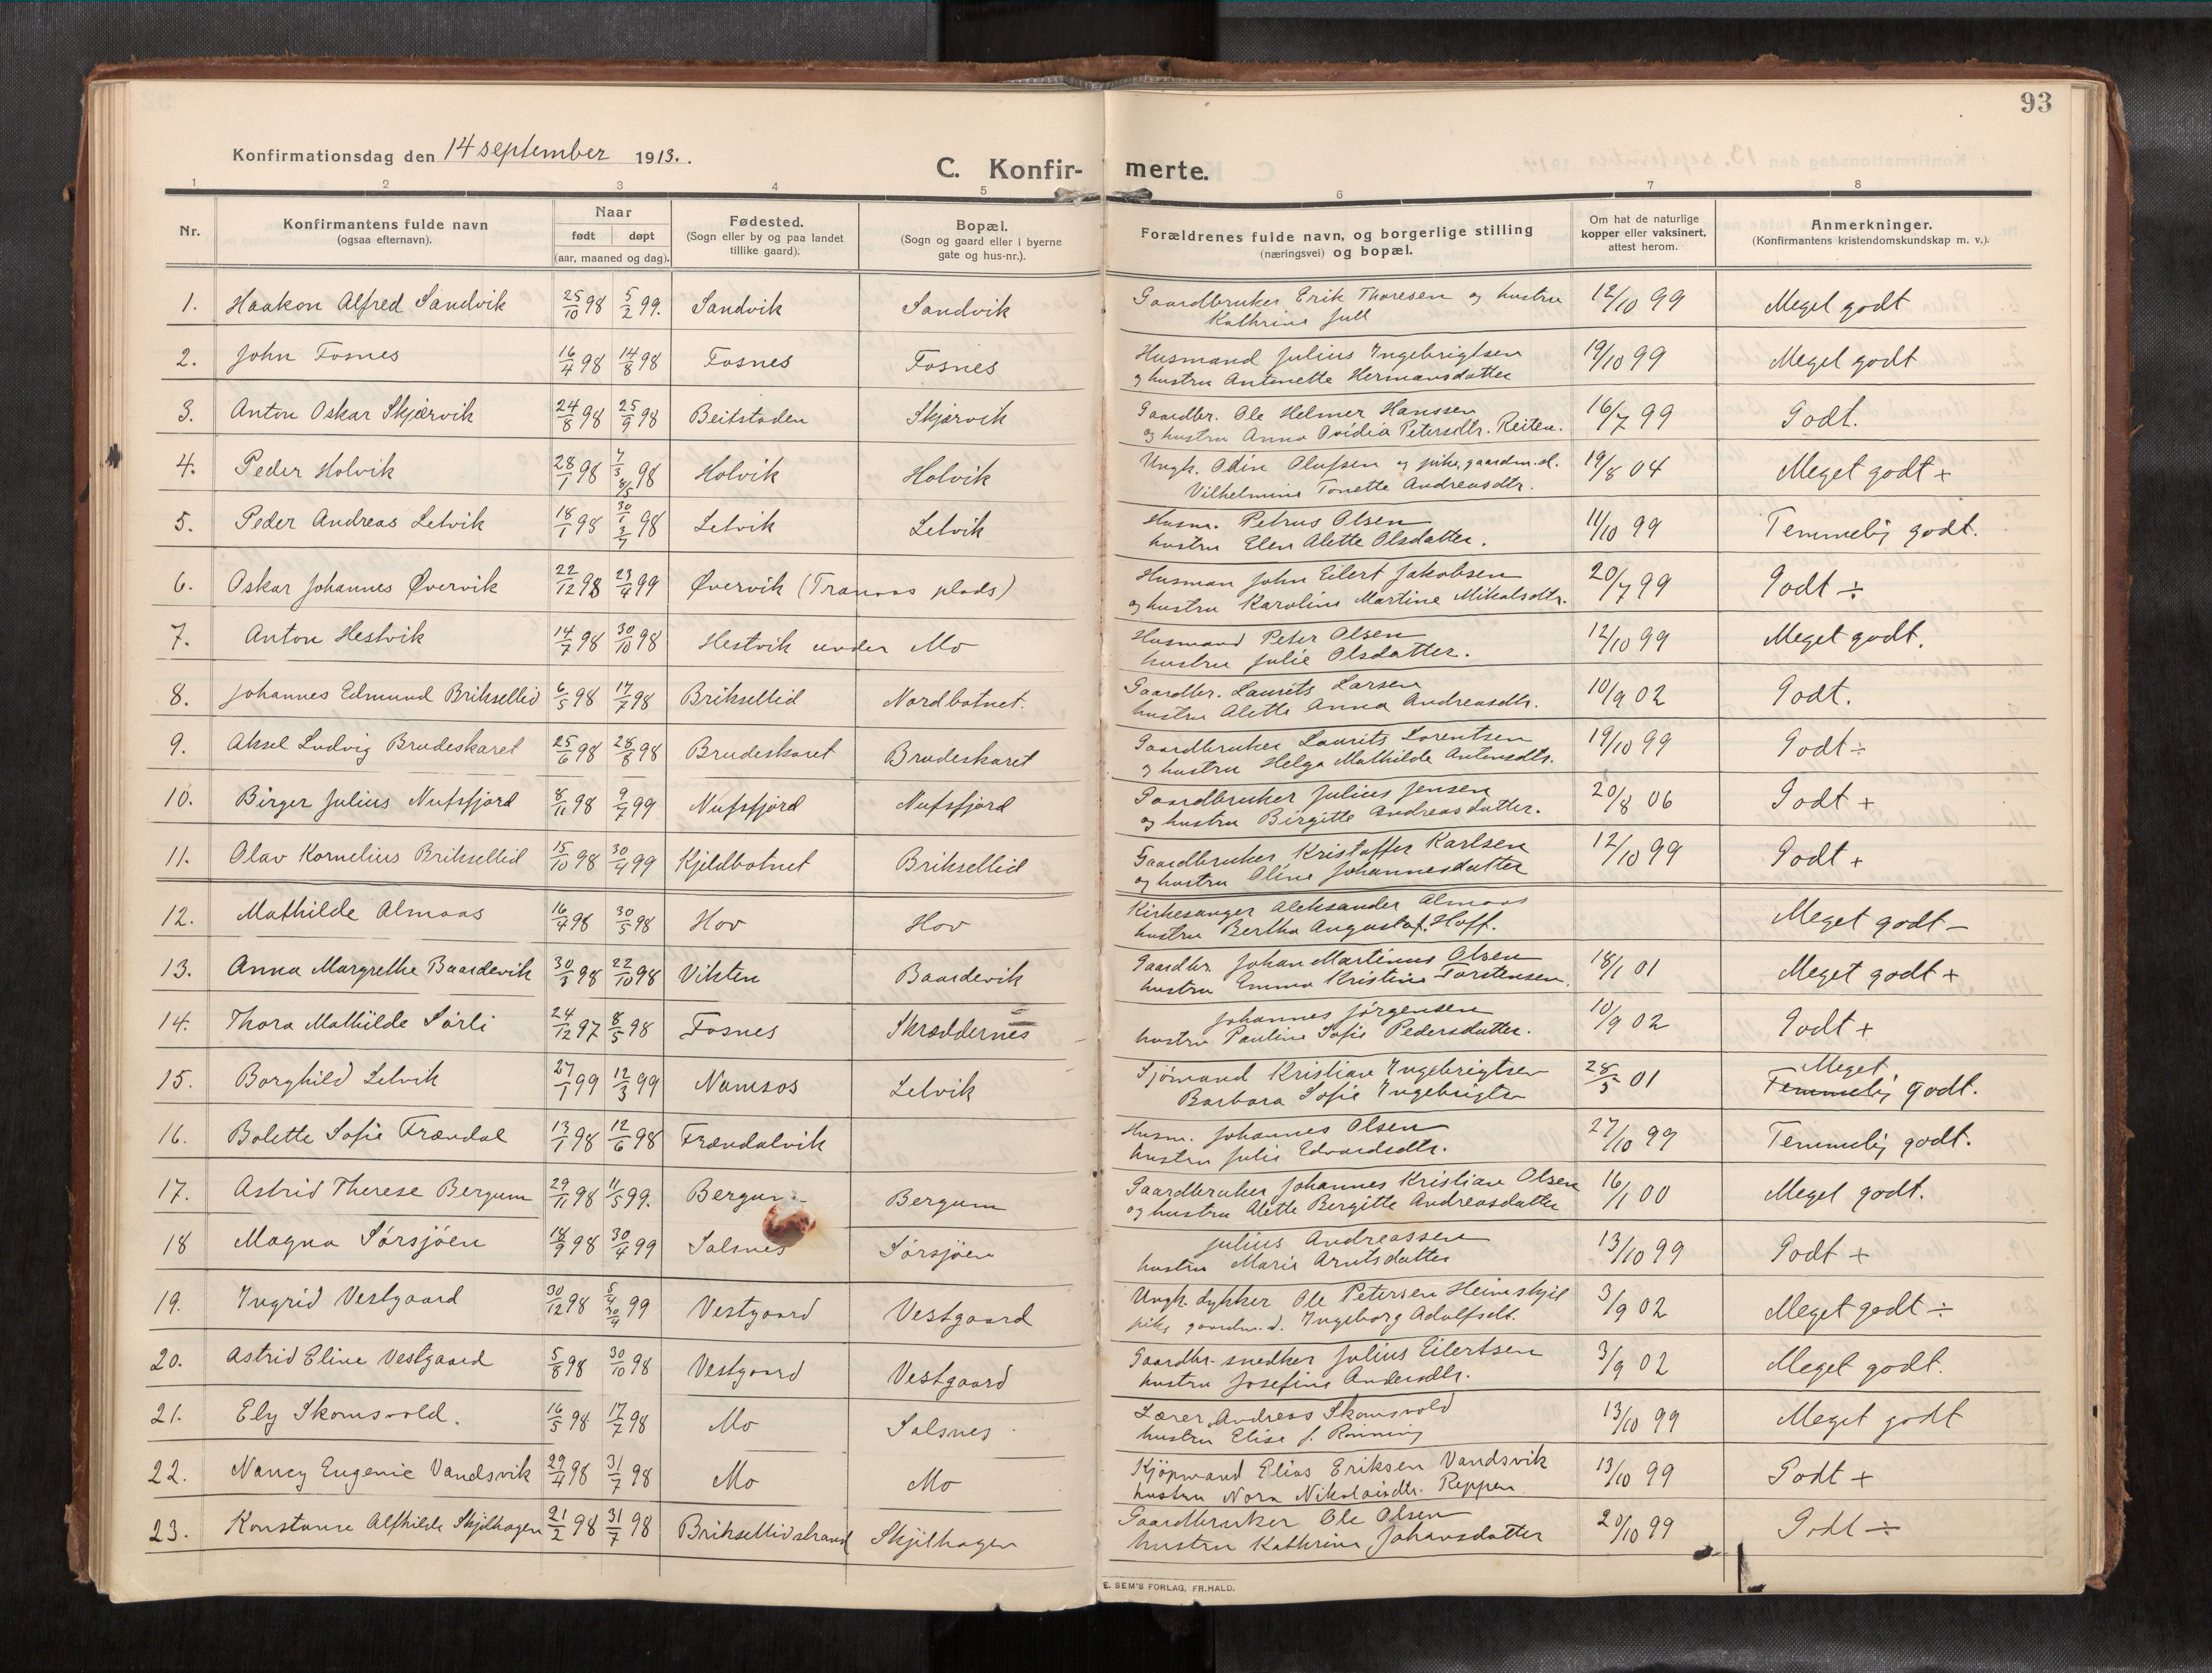 93
Konfirmationsdag den 14 september 1913.
C. Konfir- merte.
1 2 3 4 5 6 7 8
Nr. Konfirmantens fulde navn (ogsaa efternavn). Naar født døpt (aar, maaned og dag). Fødested. (Sogn eller by og paa landet tillike gaard). Bopæl. (Sogn og gaard eller i byerne gate og hus-nr.). Forældrenes fulde navn, og borgerlige stilling (næringsvei) og bopæl. Om hat de naturlige kopper eller vaksinert, attest herom. Anmerkninger. (Konfirmantens kristendomskundskap m. v.).
1. Haakon Alfred Sandvik 25/10 98 5/2 99. Sandvik Sandvik Gaardbruker Erik Thoresen og hustru 12/10 99 Meget godt
Kathrine Jull
2. John Fosnes 16/4 98 14/8 98 Fosnes Fosnes Husmand Julius Ingebrigtsen 19/10 99 Meget godt
og hustru Antonette Hermansdatter
3. Anton Oskar Skjærvik 24/8 98 25/9 98 Beitstaden Skjærvik Gaardbr. Ole Helmer Hanssen 16/7 99 Godt.
og hustru Anna Ovidia Petersdtr. Reiten.
4. Peder Holvik 28/1 98 7/3 8/5 98 Holvik Holvik Ungk. Odin Olufsen og pike, gaardm.d. 19/8 04 Meget godt +
Vilhelmine Tonette Andreasdtr.
5. Peder Andreas Lelvik 18/1 98 30/1 3/7 98 Lelvik Lelvik Husm. Petrus Olsen 11/10 99 Temmelig godt.
hustru Elen Alette Olsdatter.
6. Oskar Johannes Øvervik 22/12 98 23/4 99 Øvervik (Tranaas plads) Husman John Eilert Jakobsen 20/7 99 Godt ÷
og hustru Karoline Martine Mikalsdtr.
7. Anton Hestvik 14/7 98 30/10 98 Hestvik under Mo Husmand Peter Olsen 12/10 99 Meget godt.
hustru Julie Olsdatter.
8. Johannes Edmund Briksellid 6/5 98 17/7 98 Briksellid Nordbotnet. Gaardbr. Laurits Larsen 10/9 02 Godt.
hustru Alette Anna Andreasdtr.
9. Aksel Ludvig Brudeskaret 25/6 98 28/8 98 Brudeskaret Brudeskaret Gaardbruker Laurits Lorentsen 19/10 99 Godt ÷
og hustru Helga Mathilde Antonsdtr.
10. Birger Julius Nufsfjord 8/11 98 9/7 99 Nufsfjord Nufsfjord Gaardbruker Julius Jensen 20/8 06 Godt +
og hustru Birgitte Andreasdatter.
11. Olav Kornelius Briksellid 15/10 98 30/4 99 Kjeldbotnet Briksellid Gaardbruker Kristoffer Karlsen 12/10 99 Godt +
og hustru Oline Johannesdatter
12. Mathilde Almaas 16/4 98 30/5 98 Hov Hov Kirkesanger Aleksander Almaas Meget godt –
hustru Bertha Augusta f. Hoff.
13. Anna Margrethe Baardevik 30/3 98 22/10 98 Viksten Baardevik Gaardbr. Johan Martinus Olsen 18/1 01 Meget godt +
hustru Emma Kristine Torstensen.
14. Thora Mathilde Sørli 24/12 97 8/5 98 Fosnes Skræddernes Johannes Jørgensen 10/9 02 Godt +
hustru Pauline Sofie Pedersdatter.
15. Borghild Lelvik 27/1 99 12/3 99 Namsos Lelvik Sjømand Kristian Ingebrigtsen 28/5 01 Meget
Barbara Sofie Ingebrigtsn Temmelig godt.
16. Bolette Sofie Frændal 13/1 98 12/6 98 Frændalvik Husm. Johannes Olsen 27/10 99 Temmelig godt.
hustru Julie Edvardsdtr.
17. Astrid Therese Bergum 29/11 98 11/5 99. Bergum Bergum Gaardbruker Johannes Kristian Olsen 16/1 00 Meget godt.
og hustru Alette Bergitte Andreasdatter
18 Magna Sørsjøen 18/9 98 30/4 99 Salsnes Sørsjøen Julius Andreassen 13/10 99 Godt +
hustru Marie Arntsdatter
19. Ingrid Vestgaard 30/12 98 5/4 30/4 99 Vestgaard Vestgaard Ungk. dykker Ole Petersen Heimskjel 3/9 02 Meget godt ÷
pike gaardm.d. Ingeborg Adolfsdt.
20. Astrid Eline Vestgaard 5/8 98 30/10 98 Vestgaard Vestgaard Gaardbr. snedker Julius Eilertsen 3/9 02 Meget godt.
hustru Josefine Andersdtr.
21. Ely Skomsvold. 16/5 98 17/7 98 Mo Salsnes Lærer Andreas Skomsvold 13/10 99 Meget godt
hustru Elise f. Rønning
22. Nancy Eugenie Vandsvik 29/4 98 31/7 98 Mo Mo Kjøpmand Elias Eriksen Vandsvik 13/10 99 Godt +
hustru Nora Nikolaisdtr. Reppen.
23. Konstanse Alfhilde Skjelhagen 21/2 98 31/7 98 Briksellidstrand Skjelhagen Gaardbruker Ole Olsen 20/10 99 Godt ÷
hustru Kathrine Johansdatter
E. SEM'S FORLAG, FR.HALD.